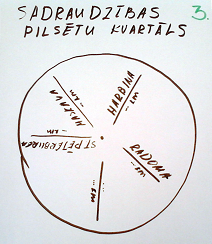 SADRAUDZĪBAS 3.
PILSĒTU KVARTĀLS
HARBINA
– KM
RADOMA
– KM
... KM
ST.PĒTERBURGA
– KM
MASKAVA
– KM